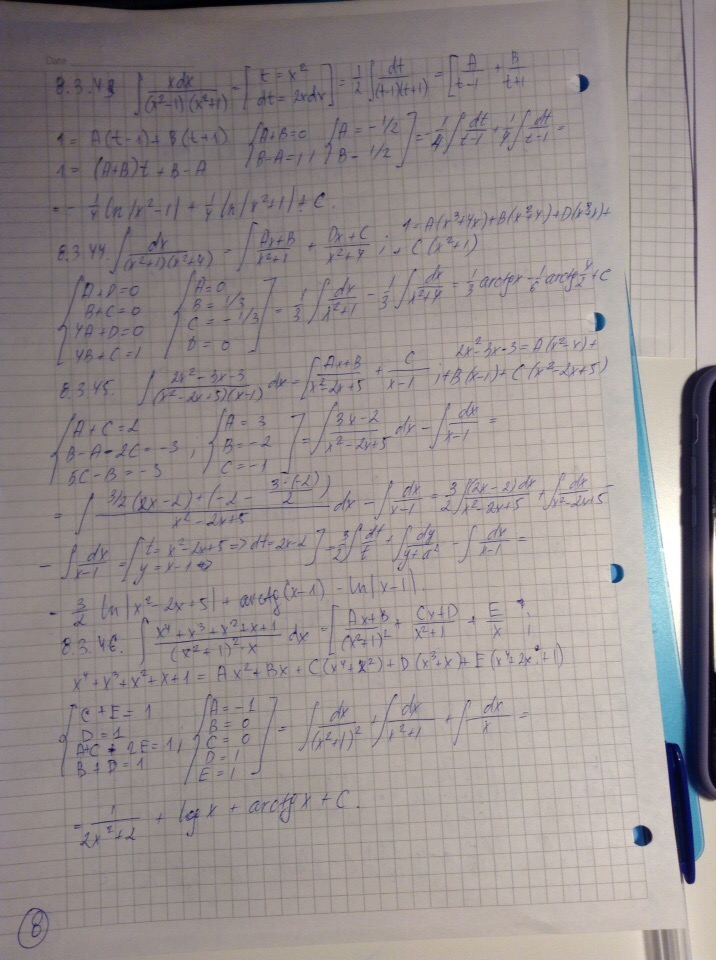 Date
8.3.43 ∫ xdx/((x²-1)(x²+1)) = [t = x² dt = 2xdx] = 1/2 ∫ dt/((t-1)(t+1)) = [A/(t-1) + B/(t+1)
1 = A(t-1) + B(t+1) {A+B=0 B-A=1; {A = -1/2 B = 1/2] = -1/4 ∫ dt/(t-1) + 1/4 ∫ dt/(t+1) =
1 = (A+B)t + B-A
= -1/4 ln|x²-1| + 1/4 ln|x²+1| + C.
8.3.44. ∫ dx/((x²+1)(x²+4)) = [Ax+B/(x²+1) + Dx+C/(x²+4) ; 1 = A(x³+4x) + B(x²+4) + D(x³+x) + C(x²+1)
{A+D=0 B+C=0 4A+D=0 4B+C=1 {A=0 B=1/3 C=-1/3 D=0] = 1/3 ∫ dx/(x²+1) - 1/3 ∫ dx/(x²+4) = 1/3 arctgx - 1/6 arctg x/2 + C
8.3.45. ∫ (2x²-3x-3)/((x²-2x+5)(x-1)) dx = [Ax+B/(x²-2x+5) + C/(x-1) ; 2x²-3x-3 = A(x²-x) + B(x-1) + C(x²-2x+5)
{A+C=2 B-A-2C=-3, 5C-B=-3 {A=3 B=-2 C=-1] = ∫ (3x-2)/(x²-2x+5) dx - ∫ dx/(x-1) =
= ∫ (3/2(2x-2) + (-2 - 3·(-2)/2))/(x²-2x+5) dx - ∫ dx/(x-1) = 3/2 ∫ (2x-2)dx/(x²-2x+5) + ∫ dx/(x²-2x+5) -
- ∫ dx/(x-1) = [t = x²-2x+5 => dt = 2x-2 y = x-1 =>] = 3/2 ∫ dt/t + ∫ dy/(y+a²) - ∫ dx/(x-1) =
- 3/2 ln|x²-2x+5| + arctg(x-1) - ln|x-1|.
8.3.46. ∫ (x⁴+x³+x²+x+1)/((x²+1)²·x) dx = [Ax+B/(x²+1)² + Cx+D/(x²+1) + E/x ;
x⁴+x³+x²+x+1 = Ax²+Bx+C(x⁴+x²)+D(x³+x)+E(x⁴+2x²+1)
{C+E=1 D=1 A+C+2E=1, B+D=1 {A=-1 B=0 C=0 D=1 E=1] = ∫ dx/(x²+1)² + ∫ dx/(x²+1) + ∫ dx/x =
= 1/(2x²+2) + log x + arctg x + C.
8